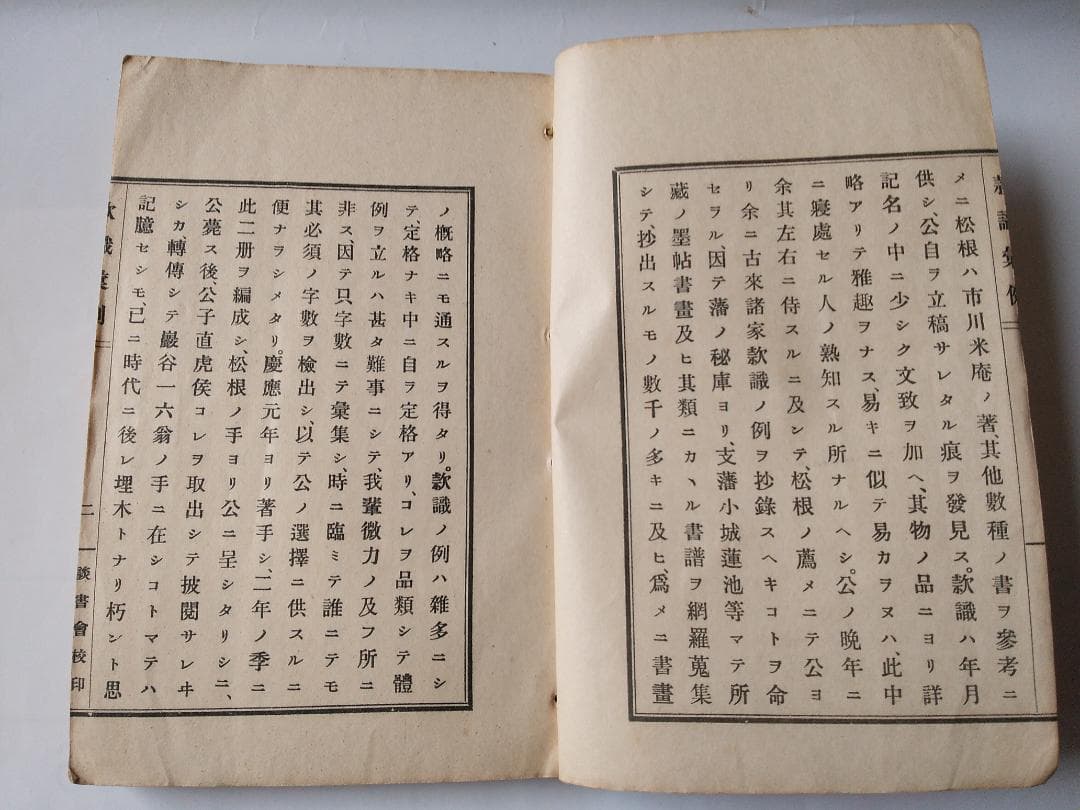 款識彙例
メニ松根ハ市川米庵ノ著、其他數種ノ書ヲ參考ニ
供シ、公自ヲ立稿サレタル痕ヲ發見ス。款識ハ年月
記名ノ中ニ少シク文致ヲ加ヘ、其物ノ品ニヨリ詳
略アリテ雅趣ヲナス、易キニ似テ易カヲヌハ、此中
ニ寢處セル人ノ熟知スル所ナルヘシ。公ノ晩年ニ
余其左右ニ侍スルニ及ンテ、松根ノ薦メニテ公ヨ
リ余ニ古來諸家款識ノ例ヲ抄錄スヘキコトヲ命
セラル、因テ藩ノ秘庫ヨリ、支藩小城蓮池等マテ所
藏ノ墨帖書畫及ヒ其類ニカヽル書譜ヲ網羅蒐集
シテ、抄出スルモノ數千ノ多キニ及ヒ、爲メニ書畫
ノ概略ニモ通スルヲ得タリ。款識ノ例ハ雜多ニシ
テ、定格ナキ中ニ自ヲ定格アリ、コレヲ品類シテ體
例ヲ立ルハ甚タ難事ニシテ、我輩微力ノ及フ所ニ
非ス、因テ只字數ニテ彙集シ、時ニ臨ミテ誰ニテモ
其必須ノ字數ヲ檢出シ、以テ公ノ選擇ニ供スルニ
便ナヲシメタリ。慶應元年ヨリ著手シ、二年ノ季ニ
此二册ヲ編成シ、松根ノ手ヨリ公ニ呈シタリシニ、
公薨ス後、公子直虎侯コレヲ取出シテ披閱サレヰ
シカ轉傳シテ巖谷一六翁ノ手ニ在シコトマテハ
記臆セシモ、已ニ時代ニ後レ埋木トナリ朽シト思
款識彙例 二 談書會校印